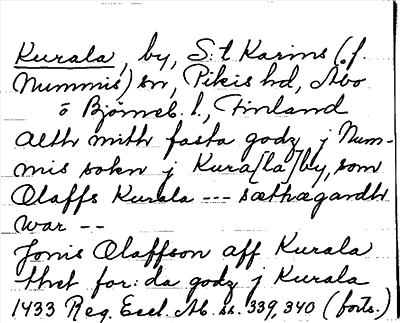 Kurala, by, S:t Karins (f.
Nummis) sn, Pikis hd, Åbo
o Björneb. l., Finland
alth mith fasta godz j Num-
mis sokn j Kura[la]by, som
Olaffs Kurala --- sæthægandh
war --
Jonis Olaffson aff Kurala
thet for:da godz j Kurala
1433 Reg. Eccl. Ab. ss. 339, 340 (forts.)